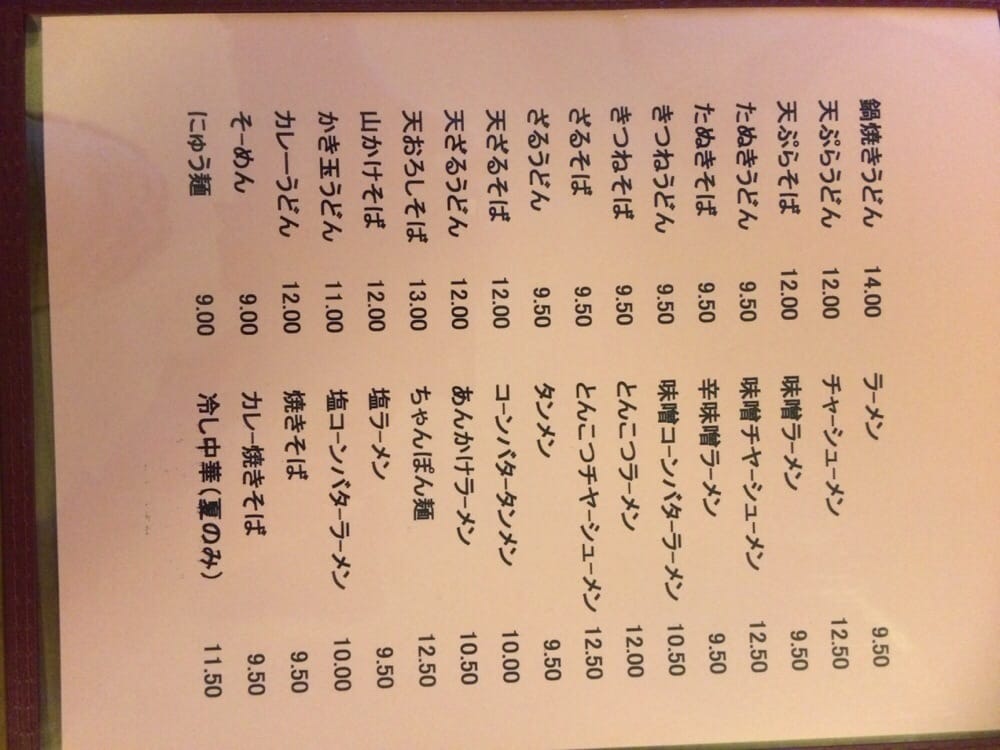 鍋焼きうどん 14.00 ラーメン 9.50
天ぷらうどん 12.00 チャーシューメン 12.50
天ぷらそば 12.00 味噌ラーメン 9.50
たぬきうどん 9.50 味噌チャーシューメン 12.50
たぬきそば 9.50 辛味噌ラーメン 9.50
きつねうどん 9.50 味噌コーンバターラーメン 10.50
きつねそば 9.50 とんこつラーメン 12.00
ざるそば 9.50 とんこつチャーシューメン 12.50
ざるうどん 9.50 タンメン 9.50
天ざるそば 12.00 コーンバタータンメン 10.00
天ざるうどん 12.00 あんかけラーメン 10.50
天おろしそば 13.00 ちゃんぽん麺 12.50
山かけそば 12.00 塩ラーメン 9.50
かき玉うどん 11.00 塩コーンバターラーメン 10.00
カレーうどん 12.00 焼きそば 9.50
そーめん 9.00 カレー焼きそば 9.50
にゅう麺 9.00 冷し中華(夏のみ) 11.50